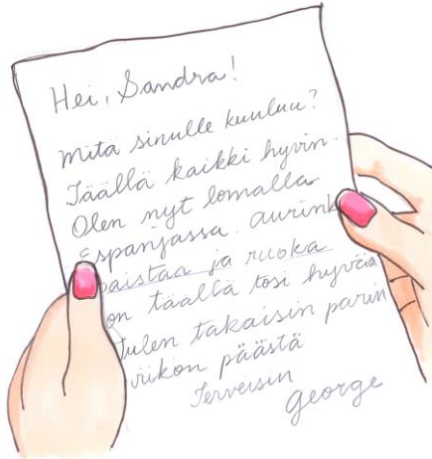 Hei, Sandra!
Mitä sinulle kuuluu?
Täällä kaikki hyvin.
Olen nyt lomalla
Espanjassa. Aurinko
paistaa ja ruoka
on täällä tosi hyvää
Tulen takaisin parin
viikon päästä
Terveisin
George